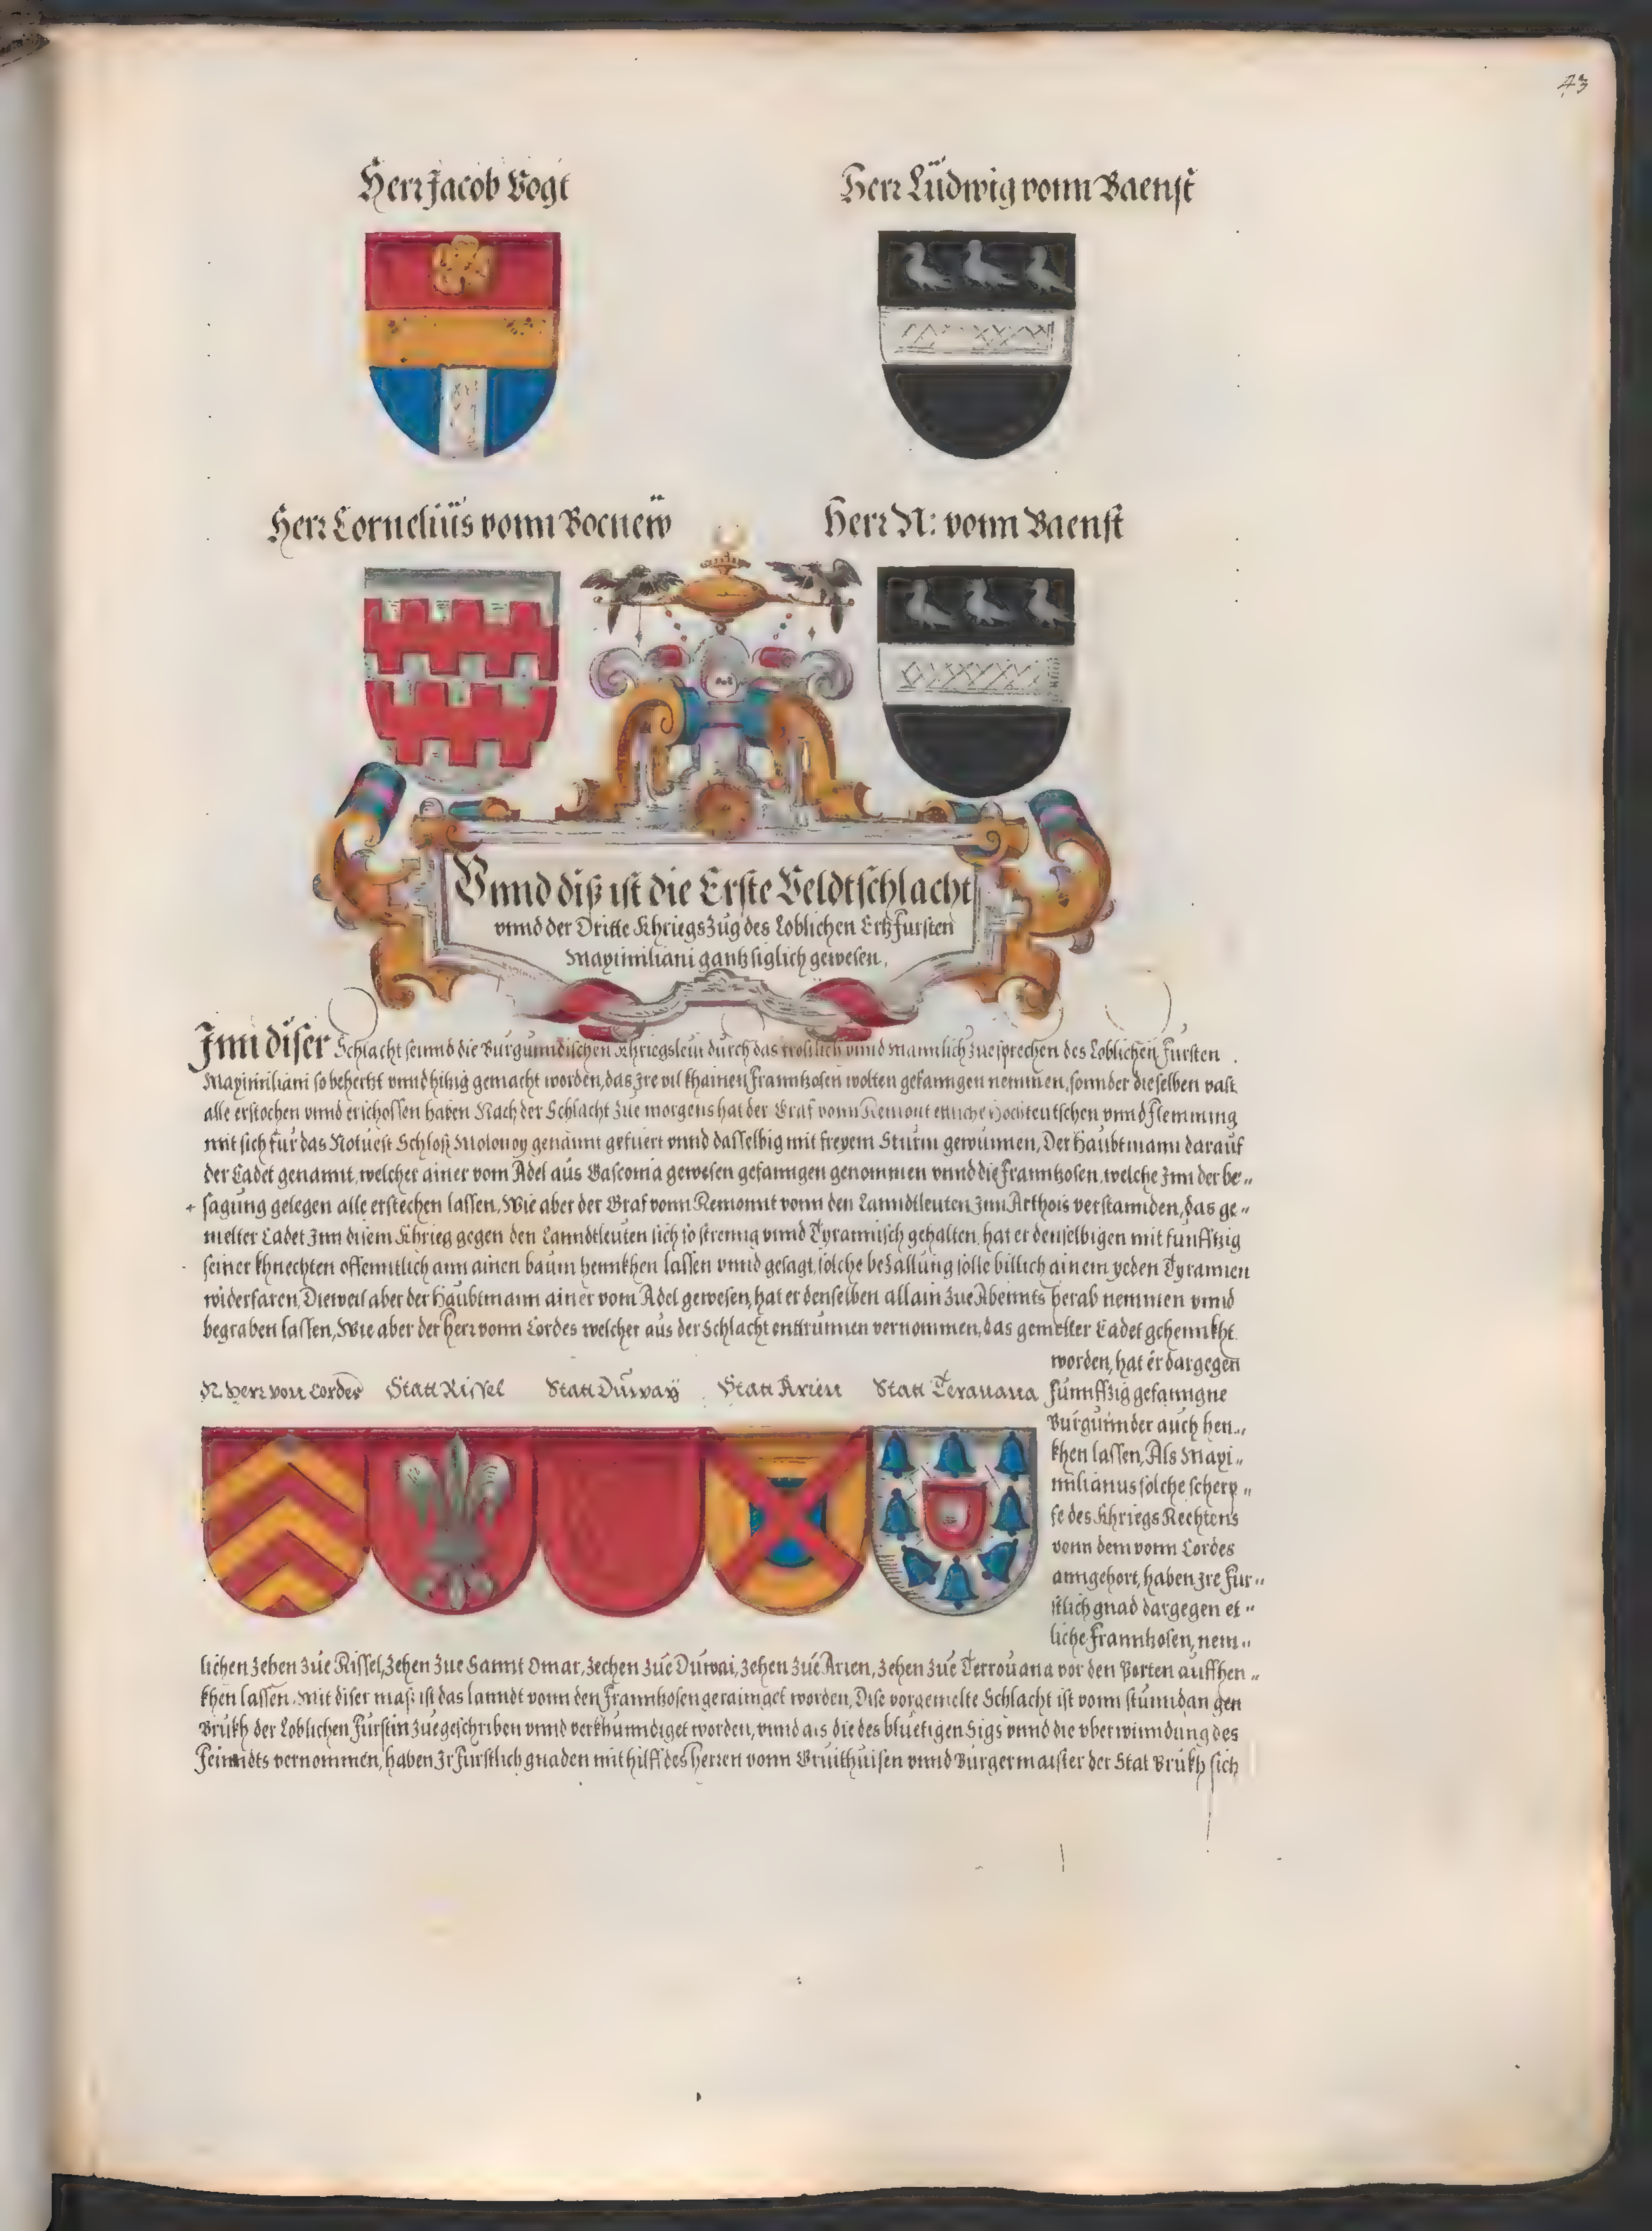 43
Herr Jacob Vogt
Herr Lüdwig vonn Baenst
Herr Cornelius vonn Bocnew
Herr N: vonn Baenst
Vnnd diß ist die Erste Veldtschlacht
vnnd der Dritte Khriegszug des Loblichen Ertzfursten
Maximiliani gantz siglich gewesen.
Inn diser Schlacht seinnd die Burgunndischen Khriegsleut durch das trostlich vnnd mannlich zuesprechen des Loblichen Fursten
Maximiliani so behertzt vnnd hitzig gemacht worden, das Ire vil khainen Frannkosen wolten gefanngen nemmen, sonnder dieselben vast
alle erstochen vnnd erschossen haben Nach der Schlacht zue morgens hat der Graf vonn Remont ettliche Hochteutschen vnnd Flemming
mit sich für das Notuest Schloß Molonoy genannt gefuert vnnd dasselbig mit freyem Sturm gewunnen, Der Haubtmann darauf
der Cadet genannt, welcher ainer vom Adel aus Gasconia gewesen gefanngen genommen vnnd die Frannkosen, welche Inn der be„
sagung gelegen alle erstechen lassen, Wie aber der Graf vonn Remonnt vonn den Lanndtleuten Inn Arthois verstannden, das ge„
melter Cadet Inn disem Khrieg gegen den Lanndtleuten sich so strenng vnnd Tyrannisch gehalten, hat er denselbigen mit funfftzig
seiner khnechten offenntlich ann ainen baum hennkhen lassen vnnd gesagt, solche bezallung solle billich ainem yeden Tyrannen
widerfaren, Dieweil aber der Haubtmann ainer vom Adel gewesen, hat er denselben allain zue Abennts herab nemmen vnnd
begraben lassen, Wie aber der Herr vonn Cordes welcher aus der Schlacht enttrunnen vernommen, das gemelter Cadet gehennkht
worden, hat er dargegen
N. Herr von Cordes
Statt Rissel
Statt Duway
Statt Arien
Statt Terauana
Fünnffzig gefanngne
Burgunnder auch hen„
khen lassen, Als Maxi„
milianus solche scherp„
fe des Khriegs Rechtens
vonn dem vonn Cordes
anngehort, haben Ire Fur„
stlich gnad dargegen et„
liche Frannkosen, nem„
lichen Zehen zue Rissel, Zehen zue Sannt Omar, Zechen zue Duwai, Zehen zue Arien, Zehen zue Terrouana vor den Porten auffhen„
khen lassen. Mit diser maß ist das lanndt vonn den Frannkosen geraimget worden, Dise vorgemelte Schlacht ist vonn stunndan gen
Brukh der Loblichen Furstin zuegeschriben vnnd verkhunndiget worden, vnnd als die des bluetigen Sigs vnnd die vberwinndung des
Feinndts vernommen, haben Ir Furstlich gnaden mit hilff des Herren vonn Gruithuisen vnnd Burgermaister der Stat Brukh sich